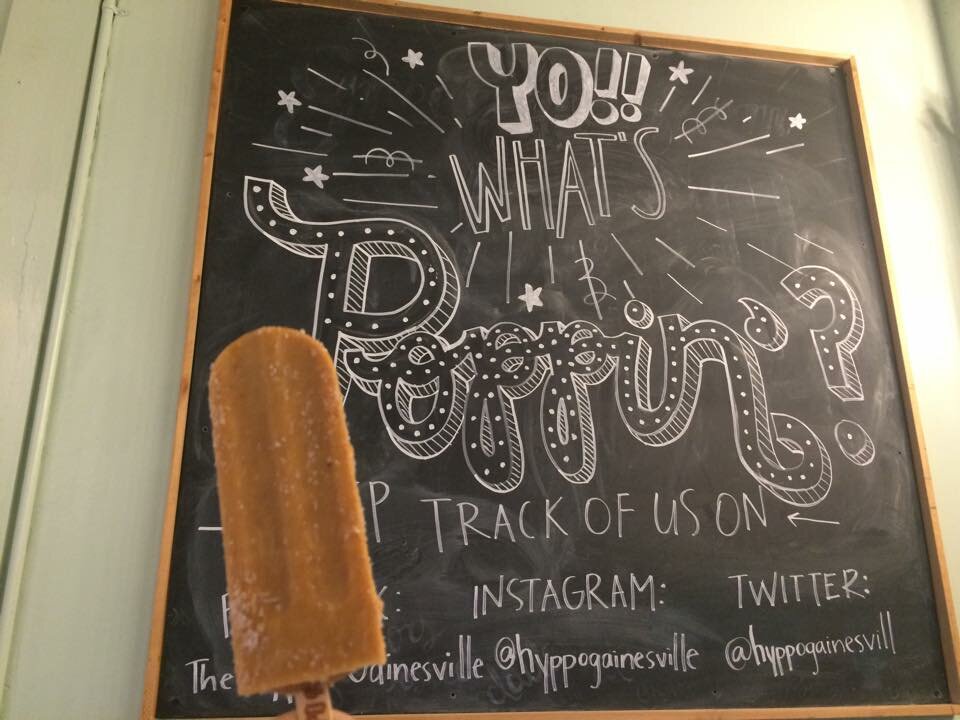 YO!!
WHAT'S
Poppin'?
TRACK OF US ON ←
INSTAGRAM: TWITTER:
The Gainesville @hyppogainesville @hyppogainesvill